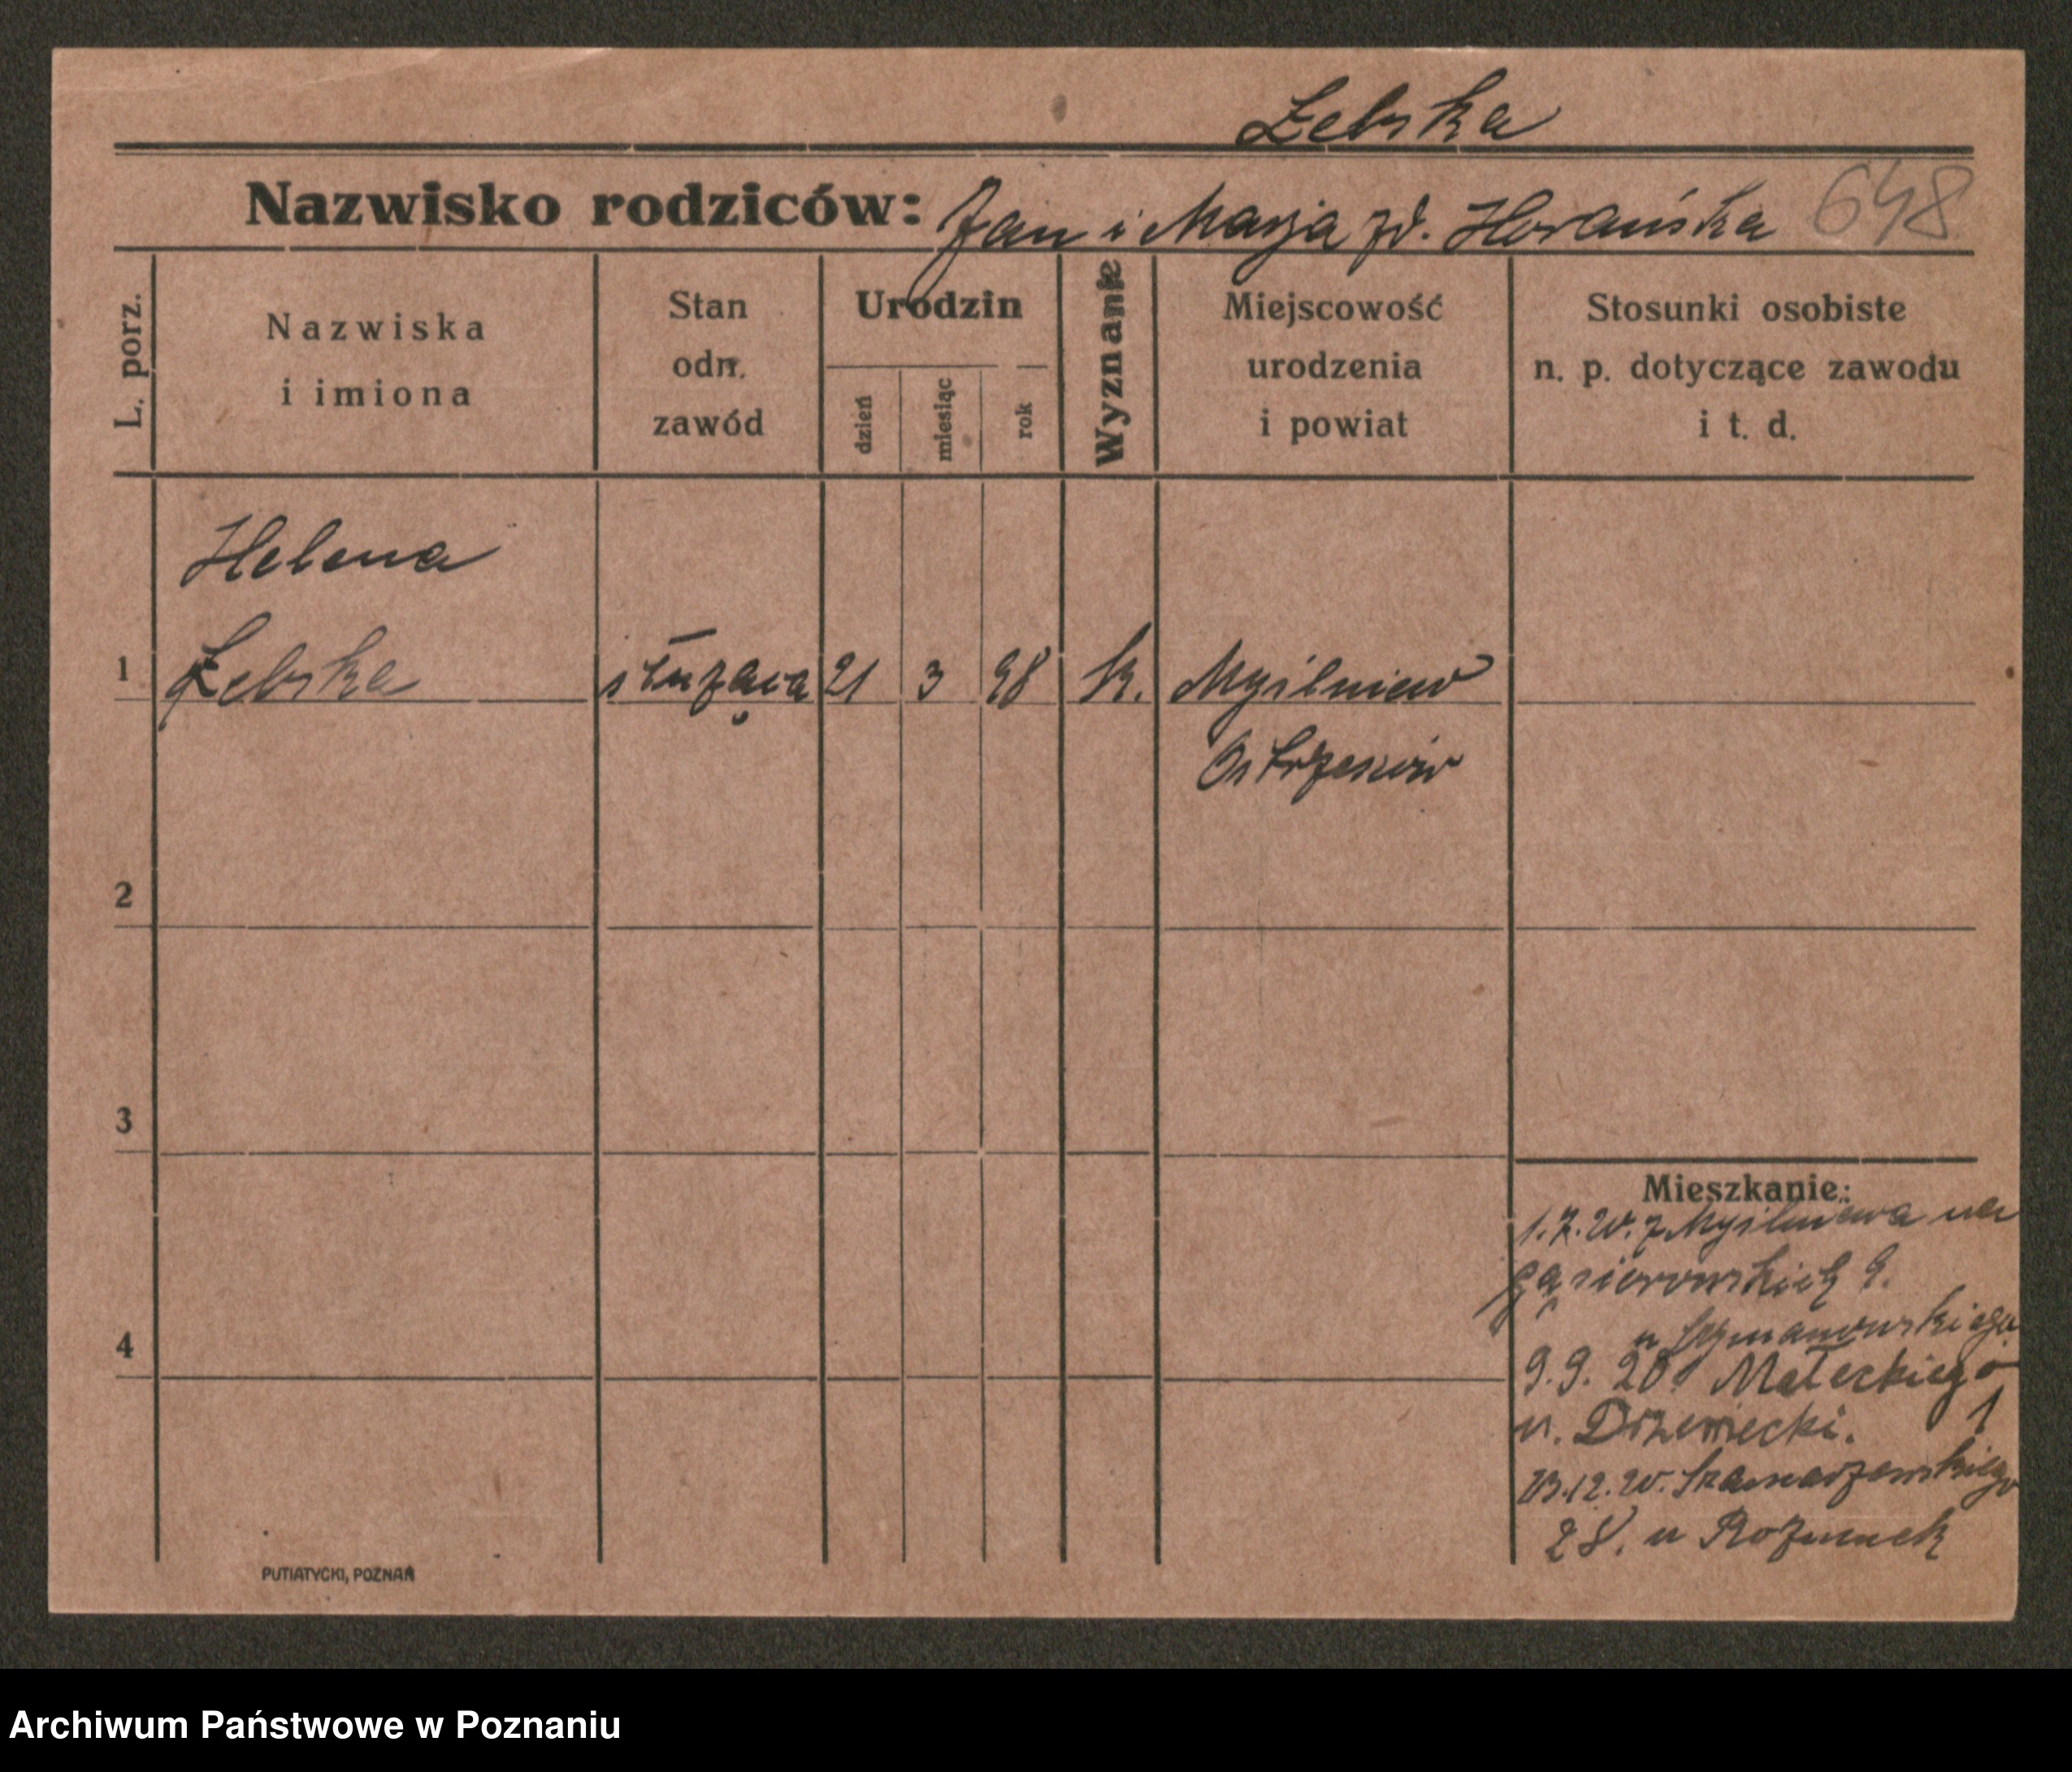 Żebska
Nazwisko rodziców: Jan i Marja zd. Horańska 648
L. porz.
Nazwiska
i imiona
Stan
odn.
zawód
Urodzin
dzień
miesiąc
rok
Wyznanie
Miejscowość
urodzenia
i powiat
Stosunki osobiste
n. p. dotyczące zawodu
i t. d.
Helena
1 Żebska służąca 21 3 98 k. Myślniew
Ostrzeszów
2
3
Mieszkanie:
1.7.20. z Myślniewa na
Gąsiorowskich 9.
u Szymanowskiego
4
9.9.20. Małeckiego
u. Drzewiecki. 1
12.20. Szamarzewskiego
28. u
PUTIATYCKI, POZNAŃ
Archiwum Państwowe w Poznaniu